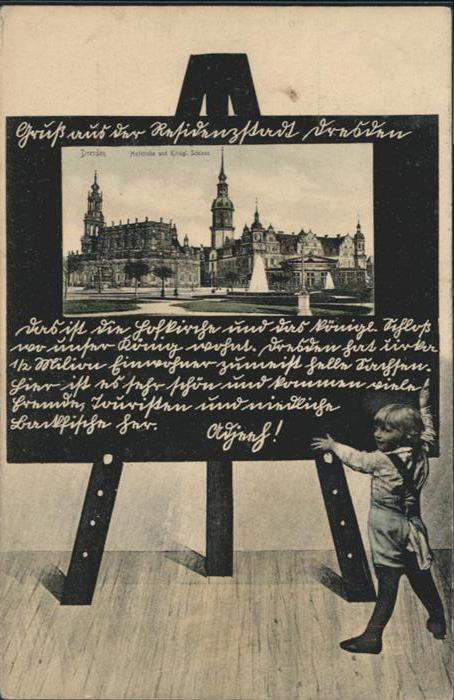 Gruß aus der Residenzstadt Dresden
Dresden Hofkirche und Königl. Schloss
Das ist die Hofkirche und das königl. Schloß
wo unser König wohnt. Dresden hat cirka
½ Milion Einwohner zumeist helle Sachsen.
Hier ist es sehr schön und kommen viele
Fremde, Touristen und niedliche
Backfische her. Adjeeh!